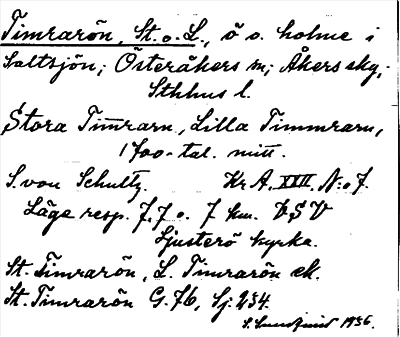 Timrarön, St. o. L., ö o. holme i
Saltsjön; Österåkers sn; Åkers skg;
Sthlms l.
Stora Tim̅rarn, Lilla Timmrarn,
1700-tal. mitt.
S. von Schultz. Kr A, XXII, N:o 7.
Läge resp. 7,7 o. 7 km. V S V
Ljusterö kyrka.
St. Timrarön, L. Timrarön ek.
St. Timrarön G. 76, Sj. 234.
1936.